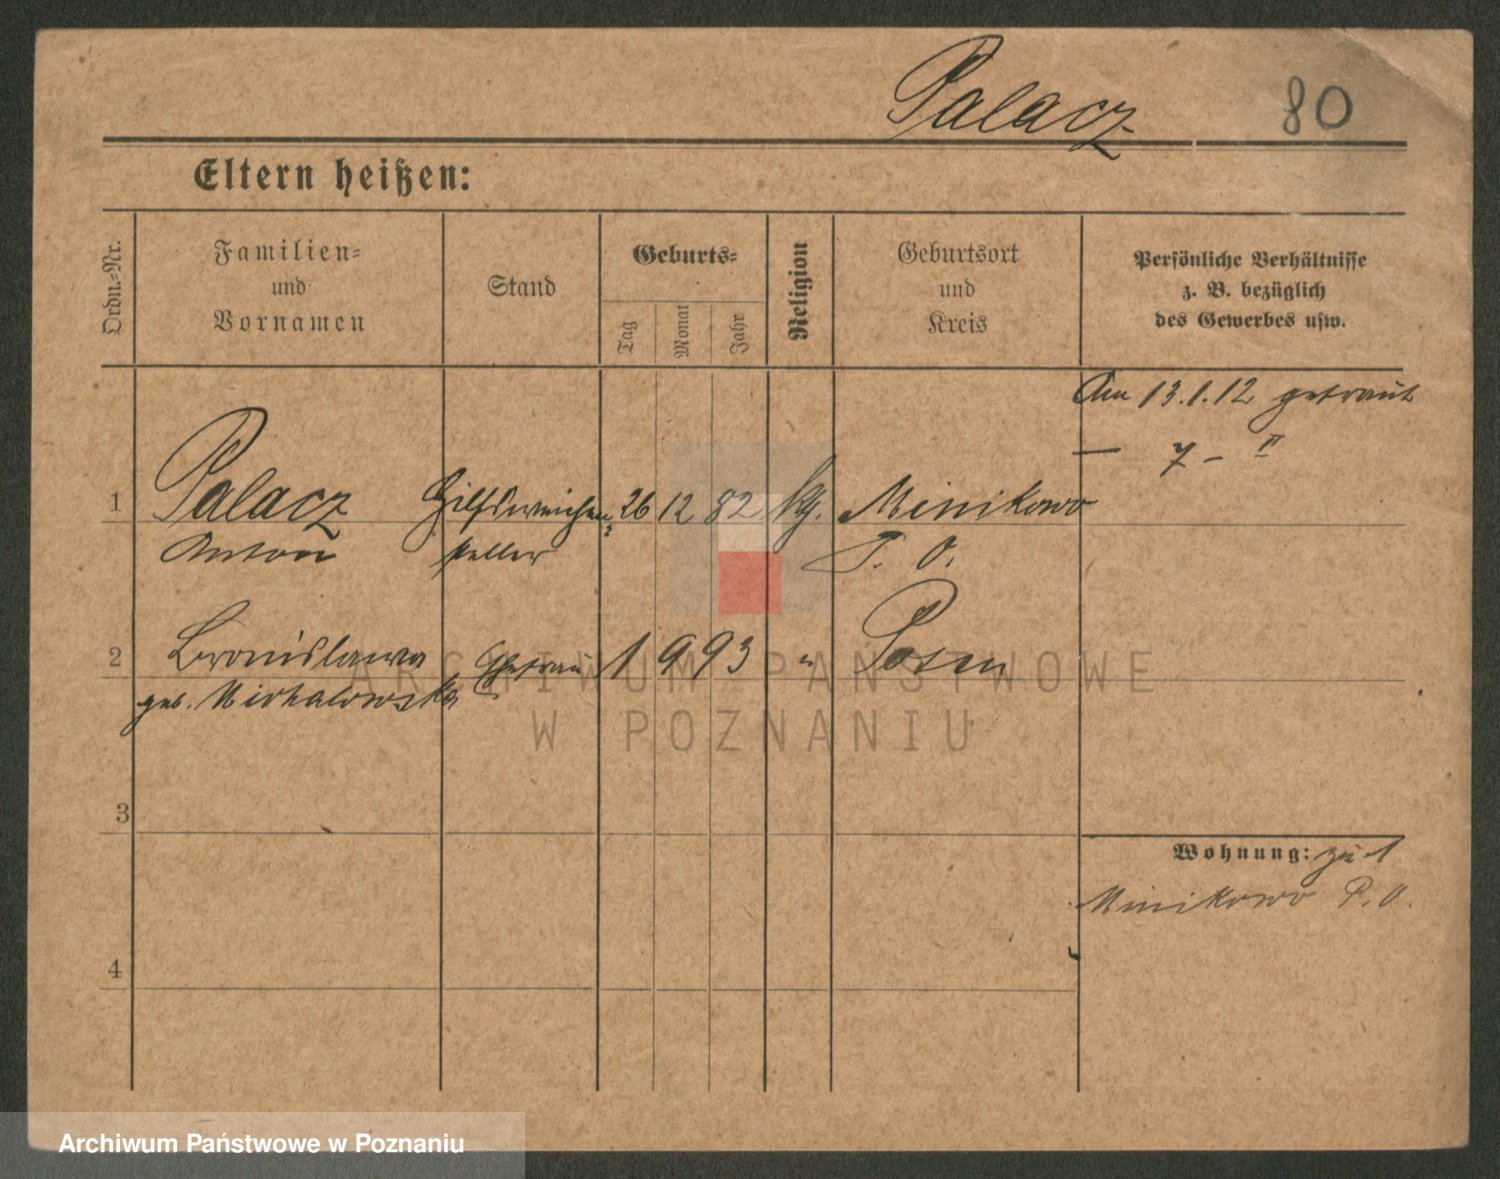 Palacz 80
Eltern heißen:
Ordn.-Nr.
Familien-
und
Vornamen
Stand
Geburts-
Tag
Monat
Jahr
Religion
Geburtsort
und
Kreis
Persönliche Verhältnisse
z. B. bezüglich
des Gewerbes usw.
Am 13.1.12 getraut
— 7 — II
1 Palacz Hilfsweichen- 26 12 82 kg. Minikowo
Anton steller P. O.
2 Bronislawa Ehefrau 1 9 93 " Posen
geb. Michalowska
3
Wohnung: zu 1
Minikowo P. O.
4
ARCHIWUM PAŃSTWOWE
W POZNANIU
Archiwum Państwowe w Poznaniu